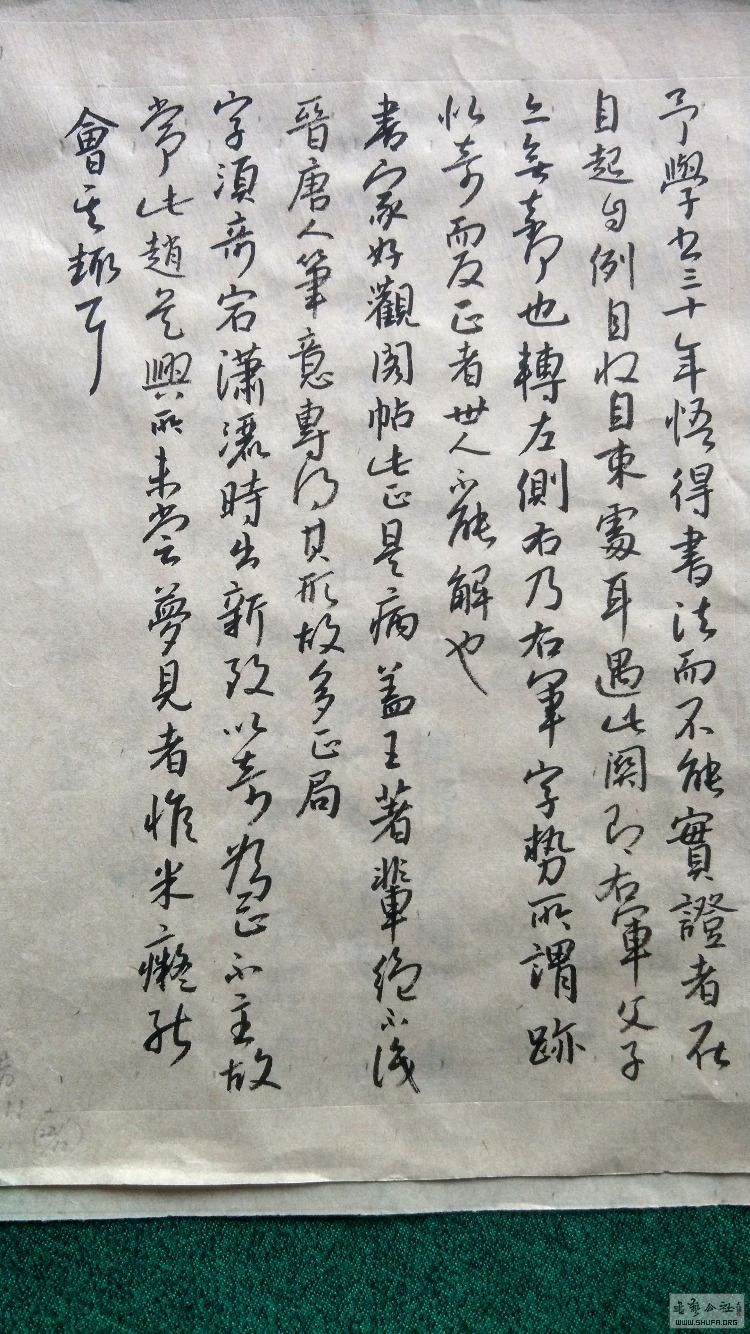 予學書三十年悟得書法而不能實證者在
自起自倒自收自束處耳過此關即右軍父子
亦無奈也轉左側右乃右軍字勢所謂跡
似奇而反正者世人不能解也
書家好觀閣帖此正是病蓋王著輩絕不識
晉唐人筆意專得其形故多正局
字須奇宕瀟灑時出新致以奇為正不主故
常此趙吳興所未嘗夢見者惟米癡能
會其趣耳
WWW.SHUFA.ORG